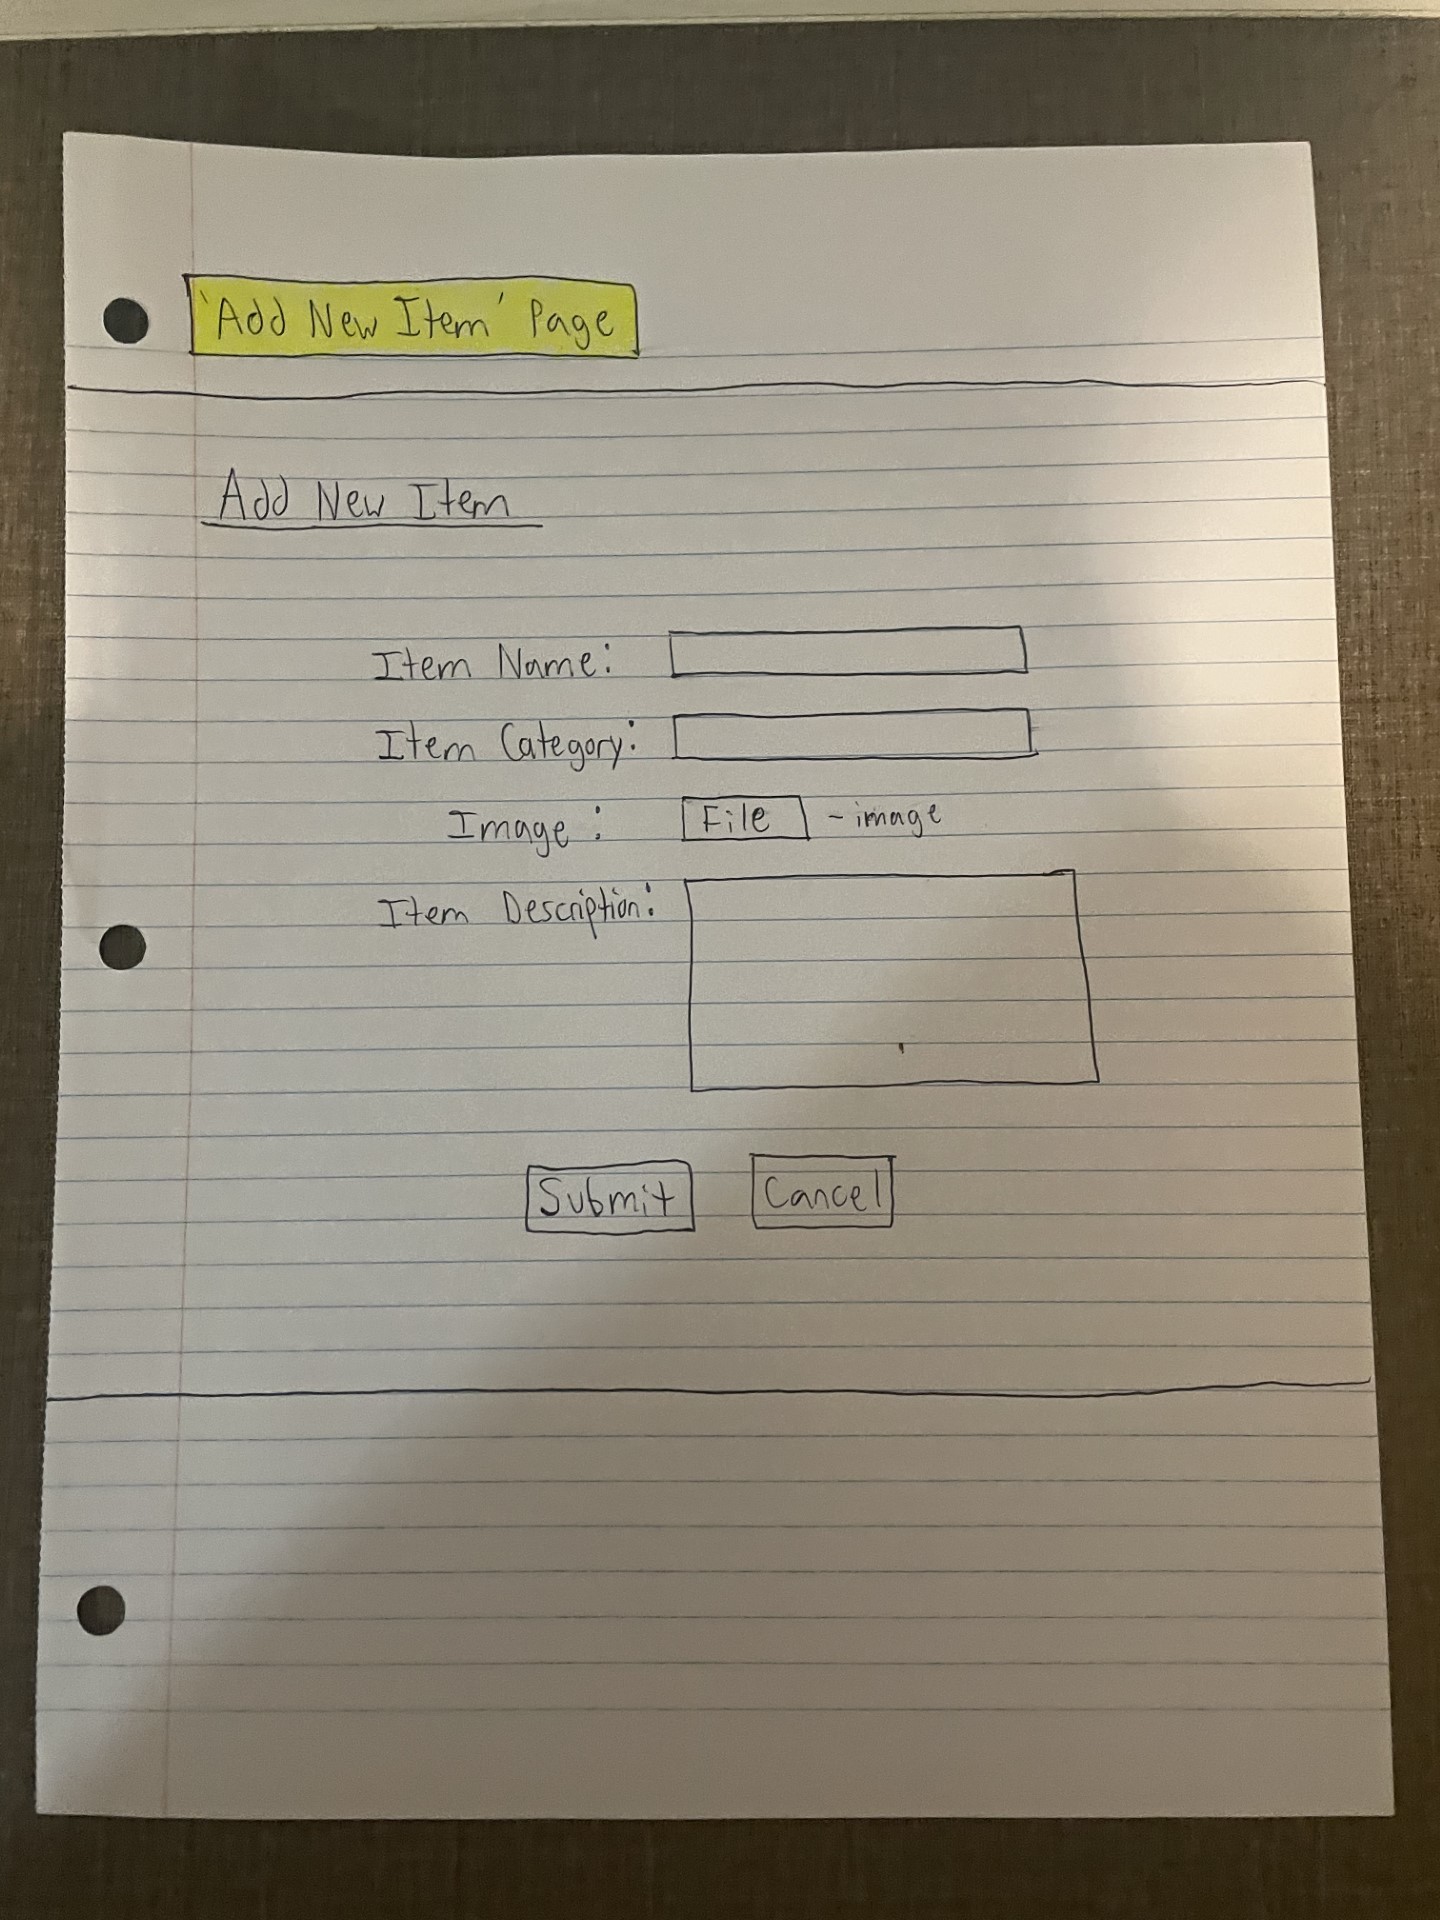 'Add New Item' Page
Add New Item
Item Name:
Item Category:
Image: File - image
Item Description:
Submit Cancel